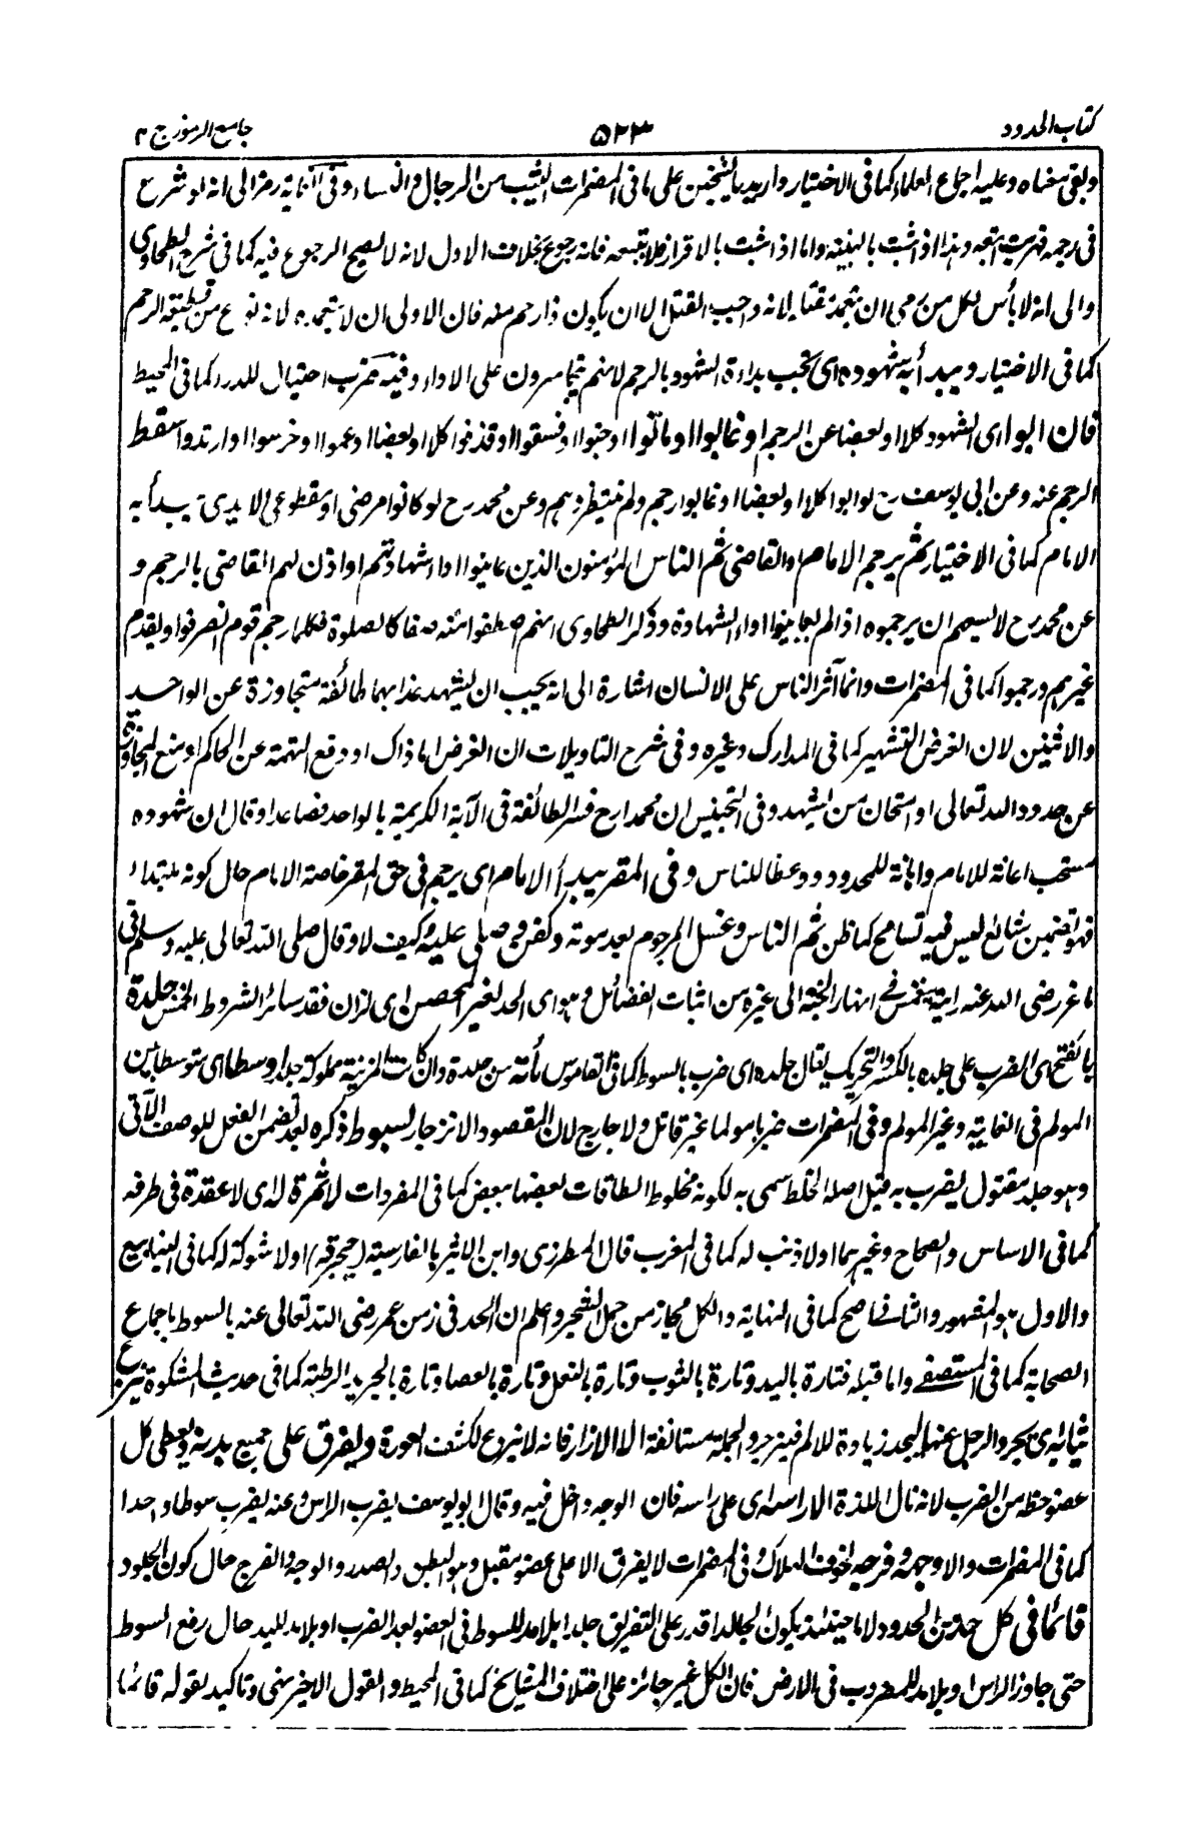 كتاب الحدود ۵۲۳ جامع الرموز ج ۲
وبقى معناه وعليه اجماع العلماء كما فى الاختيار واريد بالشيخين على ما فى المضمرات الثيب من الرجال والنساء وفى الكفاية رمز الى انه لو شرع
فى رجمه فهرب اتبعه وهذا اذا ثبت بالبينة واما اذا ثبت بالاقرار فلا يتبعه فانه رجوع بخلاف الاول لانه لا يصح الرجوع فيه كما فى شرح الطحاوى
والى انه لا بأس لكل من رمى ان يتعمد قتله لانه واجب القتل الا ان يكون ذا رحم منه فان الاولى ان لا يتعمده لانه نوع من قطيعة الرحم
كما فى الاختيار ويبدأ به شهوده اى يجب بداءة الشهود بالرجم لانهم يتجاسرون على الاداء وفيه ضرب احتيال للدرء كما فى المحيط
فان ابوا اى الشهود كلا او بعضا عن الرجم او غابوا او ماتوا او جنوا او فسقوا او قذفوا كلا او بعضا او عموا او خرسوا او ارتدوا سقط
الرجم عنه وعن ابى يوسف رح لو ابوا كلا او بعضا او غابوا رجم ولم ينتظر هم وعن محمد رح لو كانوا مرضى او مقطوعى الايدى يبدأ به
الامام كما فى الاختيار ثم يرجم الامام او القاضى ثم الناس المؤمنون الذين عاينوا اداء شهادتهم او اذن لهم القاضى بالرجم و
عن محمد رح لا يسعهم ان يرجموه اذا لم يعاينوا اداء الشهادة وذكر الطحاوى انهم اصطفوا منه صفا كالصلوة فكلما رجم قوم انصرفوا ويقدم
غيرهم ورجموا كما فى المضمرات وانما آثر الناس على الانسان اشارة الى انه يجب ان يشهد عذابهما طائفة متجاوزة عن الواحد
والاثنين لان الغرض التشهير كما فى المدارك وغيره وفى شرح التاويلات ان الغرض اما ذاك او دفع التهمة عن الحاكم او منع المجاوزة
عن حدود الله تعالى او امتحان من يشهد وفى التجنيس ان محمدا رح فسر الطائفة فى الآية الكريمة بالواحد فصاعدا وقال ان شهوده
مستحب اعانة للامام واهانة للمحدود ووعظا للناس وفى المقر يبدأ الامام اى يرجم فى حق المقر خاصة الامام حال كونه مبتداء
فهو تضمين شائع ليس فيه تسامح كما ظن ثم الناس وغسل المرجوم بعد موته وكفن وصلى عليه وكيف لا وقال صلى الله تعالى عليه وسلم فى
ماعز رضى الله عنه رايته ينغمس فى انهار الجنة الى غيره من اثبات الفضائل وهو اى الحد لغير المحصن اى لزان فقد سائر الشروط الخمس جلدة
بالفتح اى الضرب على جلده بالكسر والتحريك يقال جلده اى ضرب بالسوط كما فى القاموس مائة من جلدة وان كانت المزنية مملوكة جلدا وسطا اى متوسطا بين
المولم فى الغاية وغير المولم وفى المضمرات ضربا مولما غير قاتل ولا جارح لان المقصود الانزجار بسوط ذكره بعد تضمن الفعل للوصف الآتى
وهو جلد مفتول يضرب به قيل اصله الخلط سمى به لكونه مخلوط الطاقات بعضها ببعض كما فى المفردات لا ثمرة له اى لا عقدة فى طرفه
كما فى الاساس والصحاح وغيرهما او لا ذنب له كما فى المغرب قال المطرزى وابن الاثير بالفارسية () او لا شوكة له كما فى الينابيع
والاول هو المشهور والثانى اصح كما فى النهاية والكل مجاز من حمل الشجر واعلم ان الحد فى زمن عمر رضى الله تعالى عنه بالسوط باجماع
الصحابة كما فى المستصفى واما قبله فتارة باليد وتارة بالثوب وتارة بالنعل وتارة بالعصا وتارة بالجريد الرطبة كما فى حديث المشكوة ينزع
ثيابه اى يجرد الرجل عنها ليجد زيادة الالم فينزجر والجملة مستانفة الا الازار فانه لا ينزع لكشف العورة ويفرق على جميع بدنه ويعطى كل
عضو حظه من الضرب لانه نال اللذة الا راسه اى على راسه فان الوجه داخل فيه وقال ابو يوسف يضرب الراس وعنه يضرب سوطا واحدا
كما فى المضمرات والا وجهه وفرجه لخوف الهلاك وفى المضمرات لا يفرق الا على عضو مقبل وهو البطن والصدر والوجه والفرج حال كون المجلود
قائما فى كل حد من الحدود لانه حينئذ يكون الجالد اقدر على التفريق جلدا بلا مد للسوط فى العضو بعد الضرب او بلا مد لليد حال رفع السوط
حتى جاوز الراس او بلا مد للمضروب فى الارض فان الكل غير جائز على اختلاف المشايخ كما فى المحيط والقول الاخير نفى وتاكيد لقوله قائما